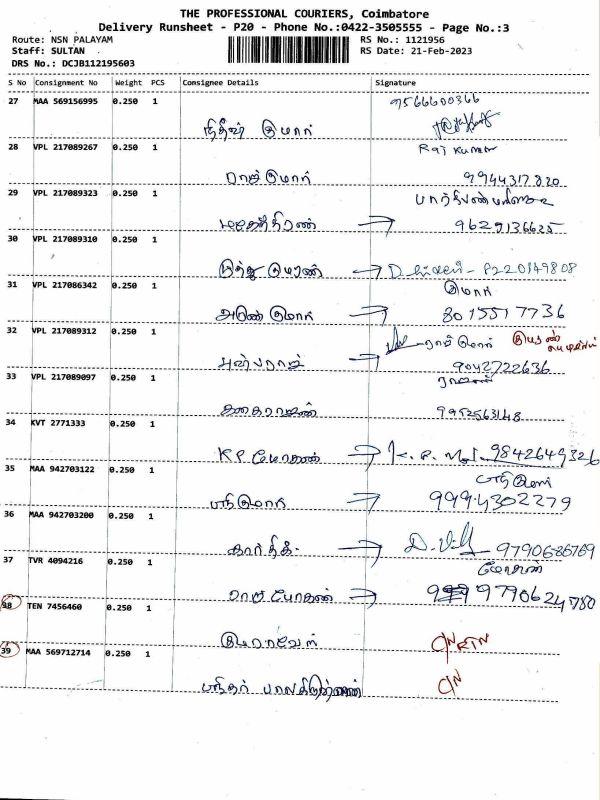 THE PROFESSIONAL COURIERS, Coimbatore
Delivery Runsheet - P20 - Phone No.:0422-3505555 - Page No.:3
Route: NSN PALAYAM RS No.: 1121956
Staff: SULTAN RS Date: 21-Feb-2023
DRS No.: DCJB112195603
S No Consignment No Weight PCS Consignee Details Signature
27 MAA 569156995 0.250 1 9566600366
நிதீஷ் குமார்
28 VPL 217089267 0.250 1 Raj Kumar
ராஜ் குமார் 9944317820
29 VPL 217089323 0.250 1
9629136625
30 VPL 217089310 0.250 1
முத்து குமரன்
31 VPL 217086342 0.250 1 குமார்
அருண் குமார் 8015517736
32 VPL 217089312 0.250 1 ராம் குமார்
அன்பராஜ் 9042722636
33 VPL 217089097 0.250 1
9952563148
34 KVT 2771333 0.250 1
K P மோகன் 9842649326
35 MAA 942703122 0.250 1
9994302279
36 MAA 942703200 0.250 1
கார்த்திக் 9790686769
37 TVR 4094216 0.250 1 மோகன்
ராம் மோகன் 9790624780
38 TEN 7456460 0.250 1
குமரவேல் C/N RTN
39 MAA 569712714 0.250 1
C/N